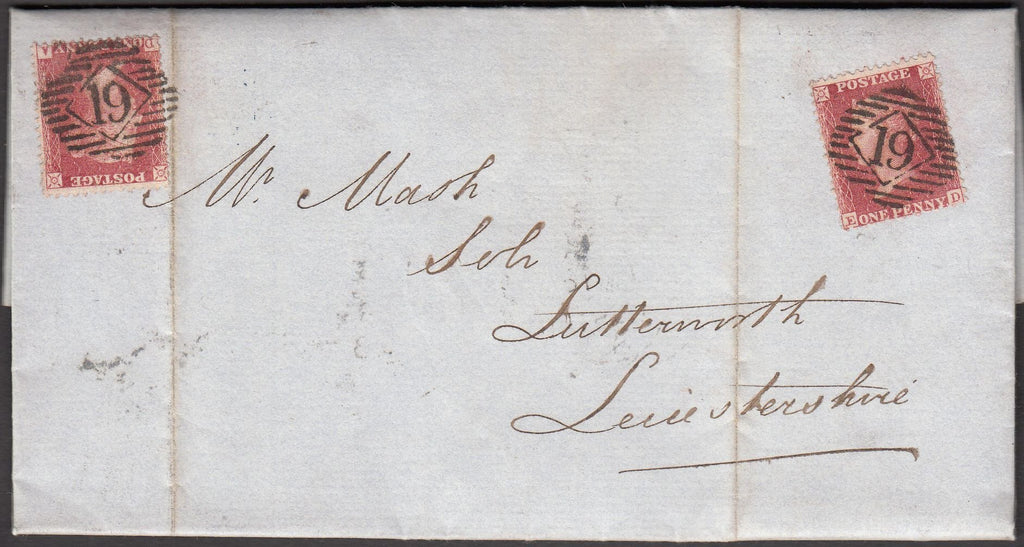 D ONE PENNY A
19
POSTAGE
POSTAGE
19
E ONE PENNY D
Mr. Mash
Solr
Lutterworth
Leicestershire